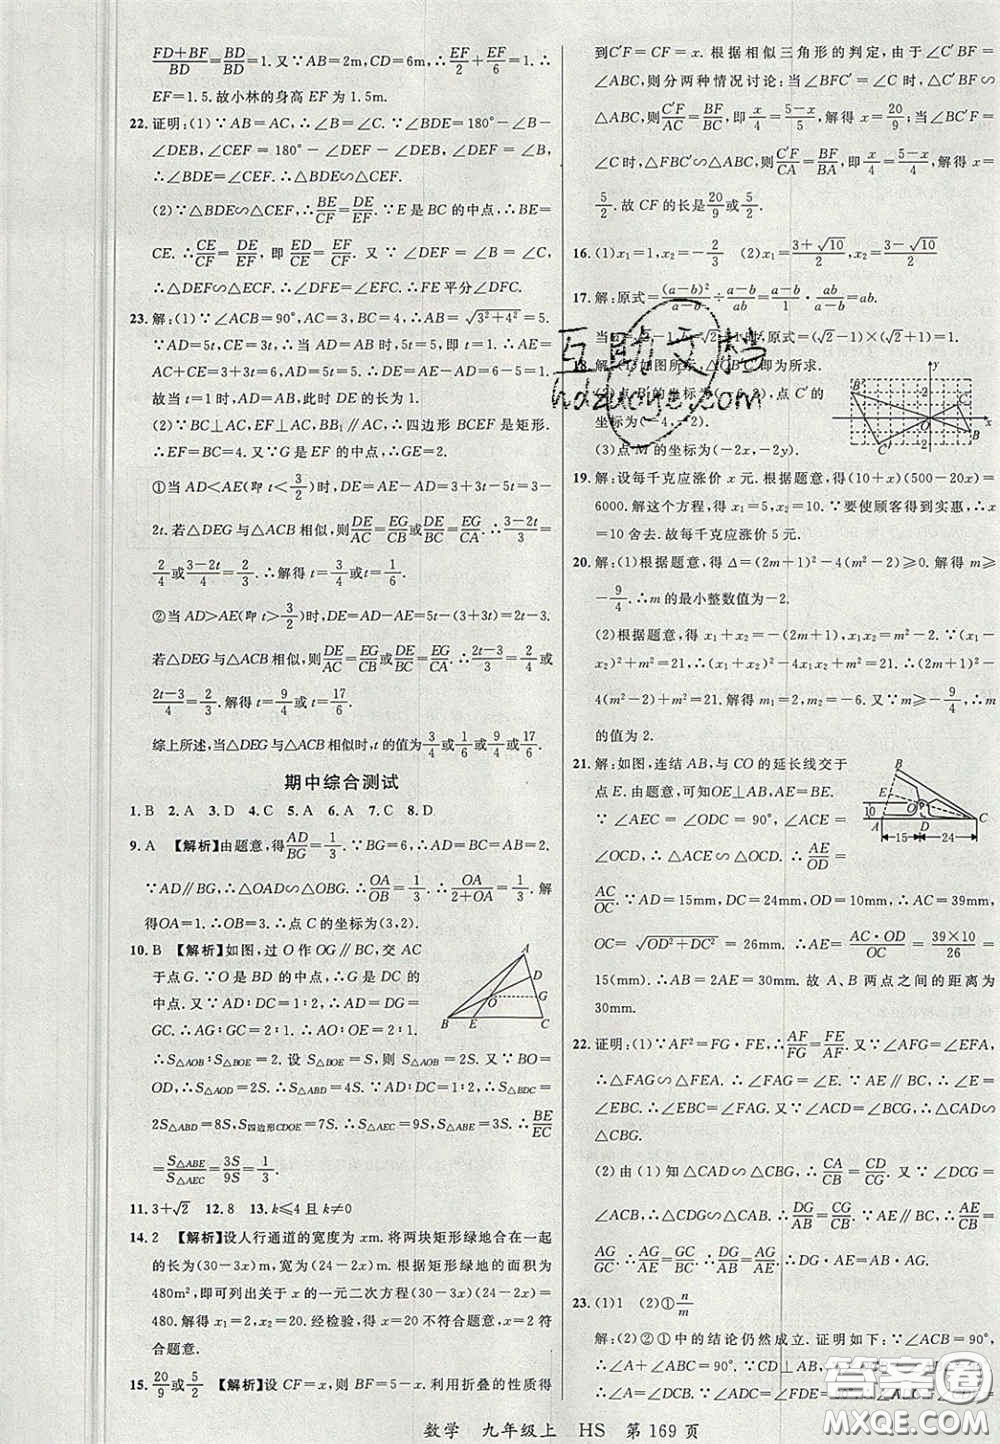 FD+BF/BD=BD/BD=1. 又∵AB=2m, CD=6m, ∴EF/2+EF/6=1. ∴
EF=1.5. 故小林的身高 EF 为 1.5m.
22. 证明:(1)∵AB=AC, ∴∠B=∠C. ∵∠BDE=180°-∠B-
∠DEB, ∠CEF=180°-∠DEF-∠DEB, ∠DEF=∠B,
∴∠BDE=∠CEF. ∴△BDE∽△CEF.
(2)∵△BDE∽△CEF, ∴BE/CF=DE/EF. ∵E是BC的中点, ∴BE=
CE. ∴CE/CF=DE/EF, 即ED/CE=EF/CF. 又∵∠DEF=∠B=∠C,
∴△DEF∽△ECF. ∴∠DFE=∠CFE. ∴FE平分∠DFC.
23. 解:(1)∵∠ACB=90°, AC=3, BC=4, ∴AB=√(3²+4²)=5.
∵AD=5t, CE=3t, ∴当AD=AB时, 5t=5, 即t=1. ∴AE=
AC+CE=3+3t=6. ∴DE=AE-AD=6-5=1.
故当t=1时, AD=AB, 此时DE的长为1.
(2)∵BC⊥AC, EF⊥AC, BF∥AC, ∴四边形BCEF是矩形.
∴EF=BC=4. ∵点G是EF的中点, ∴GE=2.
①当AD<AE(即t<3/2)时, DE=AE-AD=3+3t-5t=3-
2t. 若△DEG与△ACB相似, 则DE/AC=EG/CB或DE/CB=EG/AC. ∴(3-2t)/3=
2/4或(3-2t)/4=2/3. ∴解得t=3/4或t=1/6.
②当AD>AE(即t>3/2)时, DE=AD-AE=5t-(3+3t)=2t-3.
若△DEG与△ACB相似, 则DE/AC=EG/CB或DE/CB=EG/CA. ∴(2t-3)/3=2/4或
(2t-3)/4=2/3. 解得t=9/4或t=17/6.
综上所述, 当△DEG与△ACB相似时, t的值为3/4或1/6或9/4或17/6.
期中综合测试
1. B 2. A 3. D 4. C 5. C 6. A 7. C 8. D
9. A 【解析】由题意, 得AD/BG=1/3. ∵BG=6, ∴AD=BC=AB=2.
∵AD∥BG, ∴△OAD∽△OBG. ∴OA/OB=1/3. ∴OA/(2+OA)=1/3. 解
得OA=1. ∴OB=3. ∴点C的坐标为(3,2).
10. B 【解析】如图, 过O作OG∥BC, 交AC
于点G. ∵O是BD的中点, ∴G是DC的
中点. 又∵AD:DC=1:2, ∴AD=DG=
GC. ∴AG:GC=2:1. ∴AO:OE=2:1.
∴S△AOB:S△BOE=2. 设S△BOE=S, ∴S△AOB=2S. 又∵BO=
OD, ∴S△AOD=2S. ∴S△ABD=4S. ∵AD:DC=1:2, ∴S△BDC=
2S△ABD=8S, S四边形CDOE=7S. ∴S△AEC=9S, S△ABE=3S. ∴BE/EC
=S△ABE/S△AEC=3S/9S=1/3.
11. 3+√2 12. 8 13. k≤4且k≠0
14. 2 【解析】设人行通道的宽度为xm. 将两块矩形绿地合在一起
的长为(30-3x)m, 宽为(24-2x)m. 根据矩形绿地的面积为
480m², 即可列出关于x的一元二次方程(30-3x)(24-2x)=
480. 解得x₁=2, x₂=20. 经检验, x=20不符合题意, x=2符
合题意.
15. 20/9或5/2 【解析】设CF=x, 则BF=5-x. 利用折叠的性质得
到C′F=CF=x. 根据相似三角形的判定, 由于∠C′BF=
∠ABC, 则分两种情况讨论: 当∠BFC′=∠C时, △BFC′∽
△BCA, 则C′F/AC=BF/BC, 即x/4=(5-x)/5. 解得x=20/9; 当∠BC′F=
∠C时, △FBC′∽△ABC, 则C′F/CA=BF/BA, 即x/4=(5-x)/4. 解得x=
5/2. 故CF的长是20/9或5/2.
16. (1)x₁=1, x₂=-2/3 (2)x₁=(3+√10)/2, x₂=(3-√10)/2
17. 解:原式=(a-b)²/(a-b)÷(a-b)/ab=(a-b)/1·ab/(a-b)=ab.
+1时, 原式=(√2-1)×(√2+1)=1.
18. 解:(1)如图所示, C′即为所求.
(2)点B′的坐标为( ), 点C′的
坐标为(-4,-2).
(3)点M的坐标为(-2x,-2y).
19. 解:设每千克应涨价x元. 根据题意, 得(10+x)(500-20x)=
6000. 解这个方程, 得x₁=5, x₂=10. ∵要使顾客得到实惠, ∴x
=10舍去. 故每千克应涨价5元.
20. 解:(1)根据题意, 得Δ=(2m+1)²-4(m²-2)≥0. 解得m≥
-9/4. ∴m的最小整数值为-2.
(2)根据题意, 得x₁+x₂=-(2m+1), x₁x₂=m²-2. ∵(x₁-
x₂)²+m²=21, ∴(x₁+x₂)²-4x₁x₂+m²=21. ∴(2m+1)²-
4(m²-2)+m²=21. 解得m₁=2, m₂=-6. 又∵m≥-9/4, ∴m
的值为2.
21. 解:如图, 连结AB, 与CO的延长线交于
点E. 由题意, 可知OE⊥AB, AE=BE.
∵∠AEC=∠ODC=90°, ∠ACE=
∠OCD, ∴△ACE∽△OCD. ∴AE/OD=
AC/OC. ∵AD=15mm, DC=24mm, OD=10mm, ∴AC=39mm,
OC=√(OD²+DC²)=26mm. ∴AE=AC·OD/OC=39×10/26=
15(mm). ∴AB=2AE=30mm. 故A、B两点之间的距离为
30mm.
22. 证明:(1)∵AF²=FG·FE, ∴AF/FG=FE/AF. ∵∠AFG=∠EFA,
∴△FAG∽△FEA. ∴∠FAG=∠E. ∵AE∥BC, ∴∠E=
∠EBC. ∴∠EBC=∠FAG. 又∵∠ACD=∠BCG, ∴△CAD∽
△CBG.
(2)由(1)知△CAD∽△CBG, ∴CA/CB=CD/CG. 又∵∠DCG=
∠ACB, ∴△CDG∽△CAB. ∴DG/AB=CG/CB. ∵AE∥BC, ∴AE/CB=
AG/GC. ∴AG/AE=GC/CB. ∴DG/AB=AG/AE. ∴DG·AE=AB·AG.
23. (1)1 (2)①n/m
解:(2)②①中的结论仍然成立. 证明如下: ∵∠ACB=90°,
∴∠A+∠ABC=90°. ∵CD⊥AB,
数学 九年级上 HS 第169页
互助文档
hdzuoye.com
答案圈
MXQE.COM